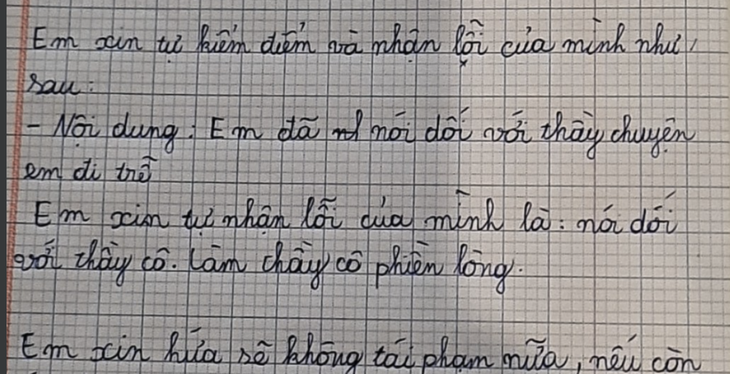 Em xin tự kiểm điểm và nhận lỗi của mình như
sau:
- Nội dung: Em đã nói dối với thầy chuyện
em đi trễ
Em xin tự nhận lỗi của mình là: nói dối
với thầy cô. Làm thầy cô phiền lòng.
Em xin hứa sẽ không tái phạm nữa, nếu còn